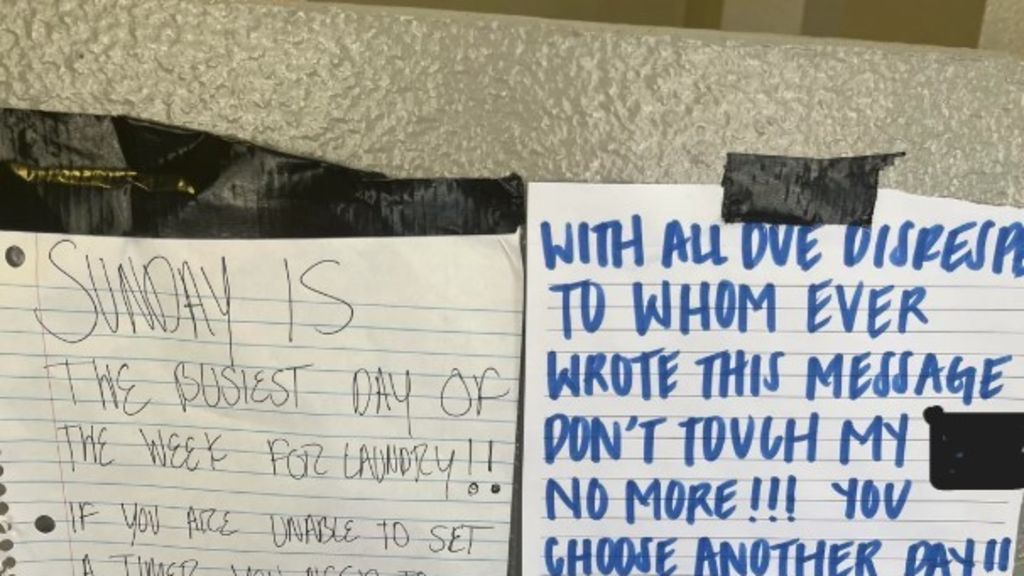 SUNDAY IS
THE BUSIEST DAY OF
THE WEEK FOR LAUNDRY!!
IF YOU ARE UNABLE TO SET
A TIMER YOU NEED TO
WITH ALL DUE DISRESPE
TO WHOM EVER
WROTE THIS MESSAGE
DON'T TOUCH MY
NO MORE!!! YOU
CHOOSE ANOTHER DAY!!